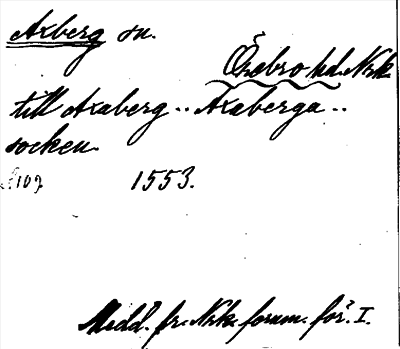 Axberg sn.
Örebro hd. Nrk.
till Axaberg .. Axaberga ..
socken.
1553.
Medd. fr. Nrk. fornm. för. I.